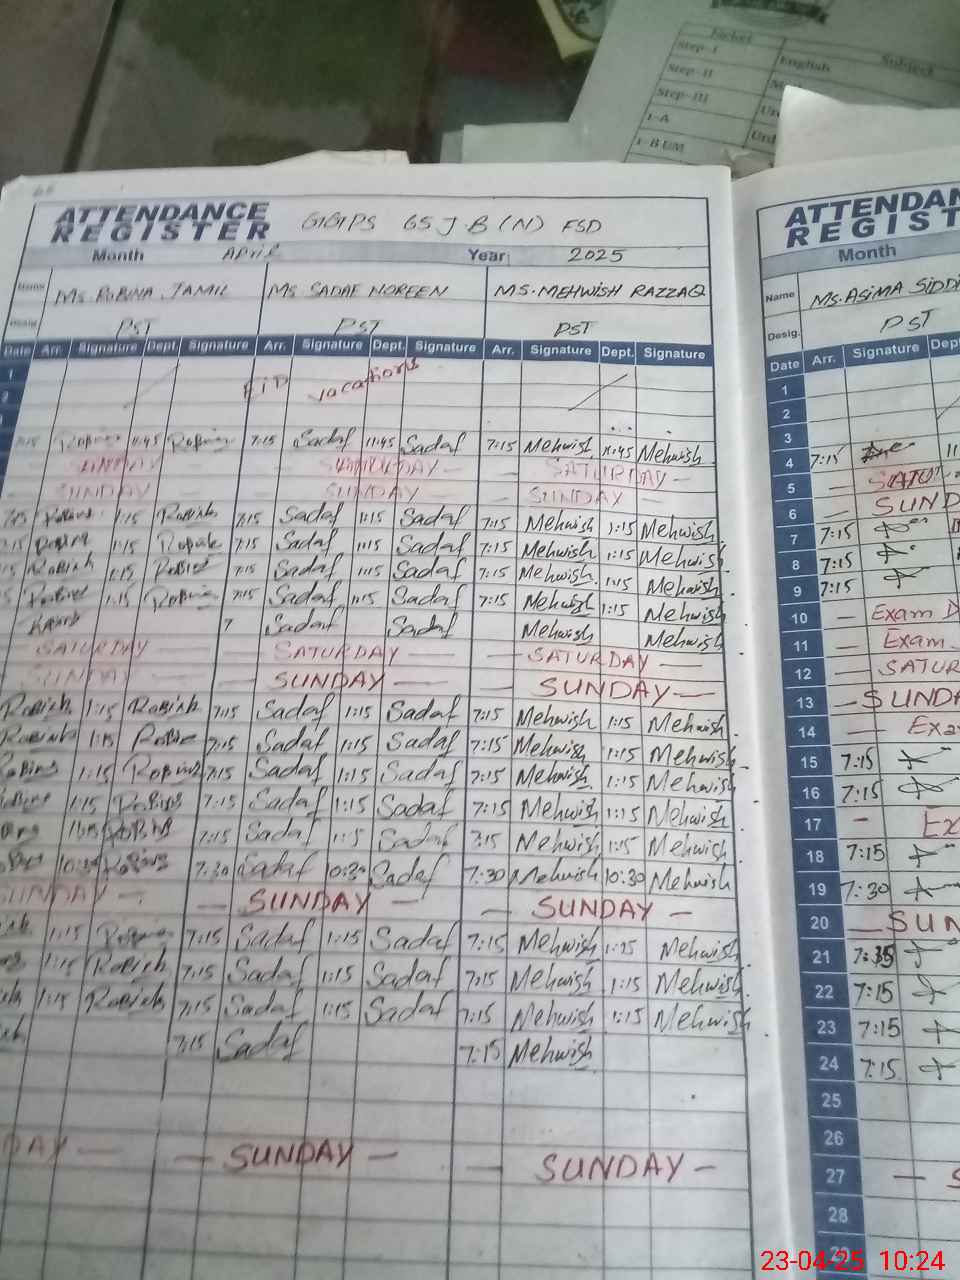 Step-I
English
Subject
Step-II
Step-III
I-A
I-B UM
Urd
ATTENDANCE REGISTER GGPS 65 J.B (N) FSD
Month April Year 2025
Name Ms. RUBINA JAMIL Ms SADAF NOREEN MS. MEHWISH RAZZAQ
Desig. PST PST PST
Date Arr. Signature Dept. Signature Arr. Signature Dept. Signature Arr. Signature Dept. Signature
1 EID vacations
2
7:15 11:45 7:15 Sadaf 11:45 Sadaf 7:15 Mehwish 11:45 Mehwish
SUNDAY SATURDAY — — SATURDAY —
— SUNDAY — — SUNDAY — — SUNDAY —
7:15 1:15 7:15 Sadaf 1:15 Sadaf 7:15 Mehwish 1:15 Mehwish
1:15 7:15 Sadaf 1:15 Sadaf 7:15 Mehwish 1:15 Mehwish
1:15 7:15 Sadaf 1:15 Sadaf 7:15 Mehwish 1:15 Mehwish
1:15 7:15 Sadaf 1:15 Sadaf 7:15 Mehwish 1:15 Mehwish
7 Sadaf Sadaf Mehwish Mehwish
SATURDAY — — SATURDAY — — SATURDAY —
SUNDAY — — SUNDAY — — SUNDAY —
1:15 7:15 Sadaf 1:15 Sadaf 7:15 Mehwish 1:15 Mehwish
1:15 7:15 Sadaf 1:15 Sadaf 7:15 Mehwish 1:15 Mehwish
1:15 7:15 Sadaf 1:15 Sadaf 7:15 Mehwish 1:15 Mehwish
1:15 7:15 Sadaf 1:15 Sadaf 7:15 Mehwish 1:15 Mehwish
7:15 Sadaf 1:15 Sadaf 7:15 Mehwish 1:15 Mehwish
10:30 7:30 Sadaf 10:30 Sadaf 7:30 Mehwish 10:30 Mehwish
SUNDAY — — SUNDAY — — SUNDAY —
1:15 7:15 Sadaf 1:15 Sadaf 7:15 Mehwish 1:15 Mehwish
1:15 7:15 Sadaf 1:15 Sadaf 7:15 Mehwish 1:15 Mehwish
1:15 7:15 Sadaf 1:15 Sadaf 7:15 Mehwish 1:15 Mehwish
7:15 Sadaf 7:15 Mehwish
DAY — — SUNDAY — — SUNDAY —
ATTENDAN
REGIST
Month
Name Ms. ASIMA SIDDI
Desig. PST
Date Arr. Signature Dept
1
2
3
4 7:15
5 — SATU
6 — SUND
7 7:15
8 7:15
9 7:15
10 — Exam D
11 — Exam
12 — SATUR
13 — SUNDA
14 — Exa
15 7:15
16 7:15
17 - Ex
18 7:15
19 7:30
20 — SUN
21 7:15
22 7:15
23 7:15
24 7:15
25
26
27 — S
28
29
23-04-25 10:24